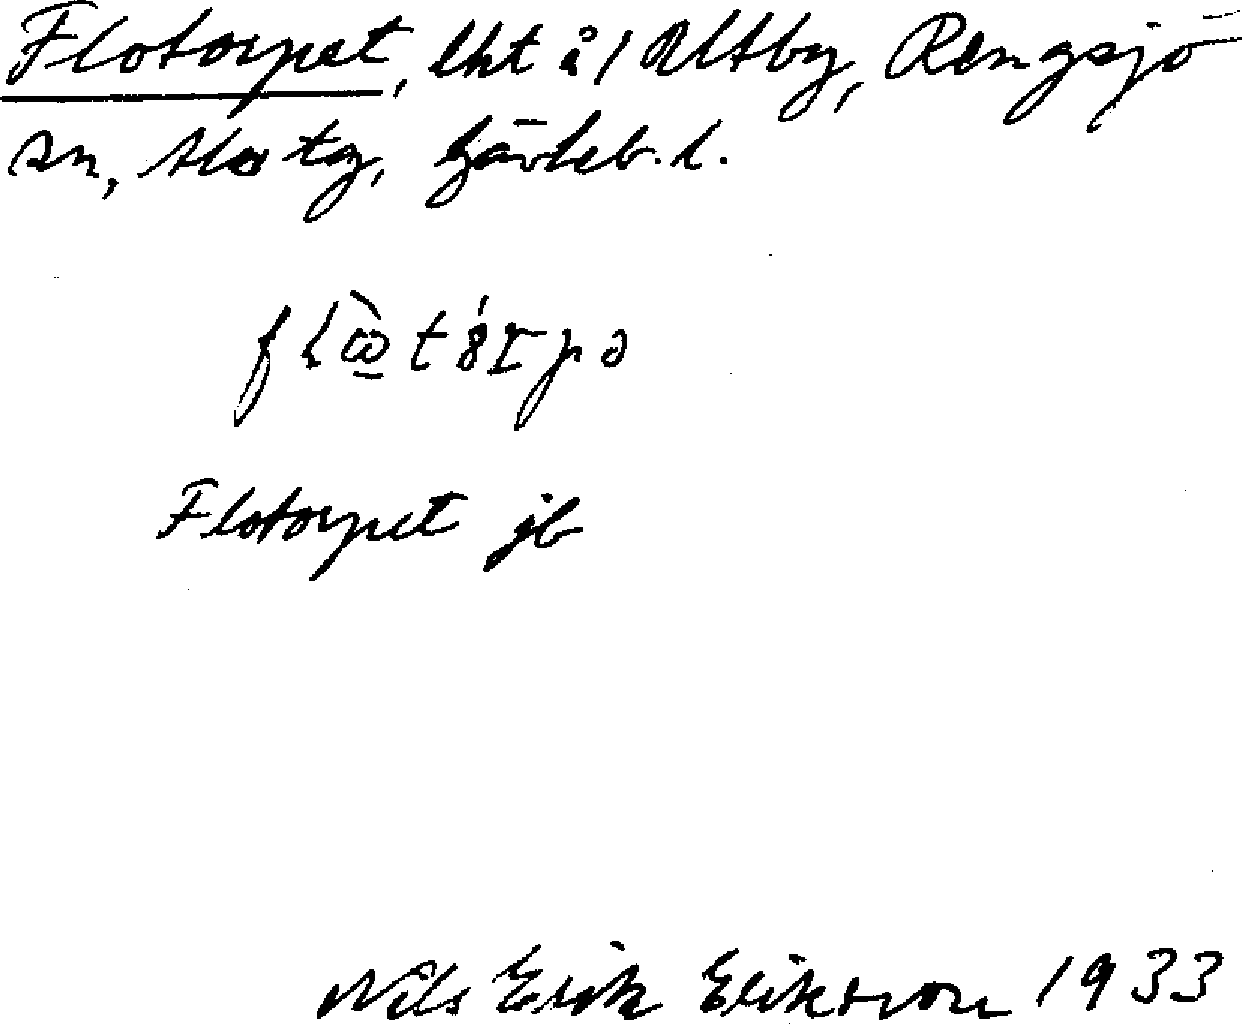 Flotorpet, lht å 1 Ultby, Rengsjö
sn, Ala tg, Gävleb. l.
Flotorpet jb
Nils Erik Erikson 1933